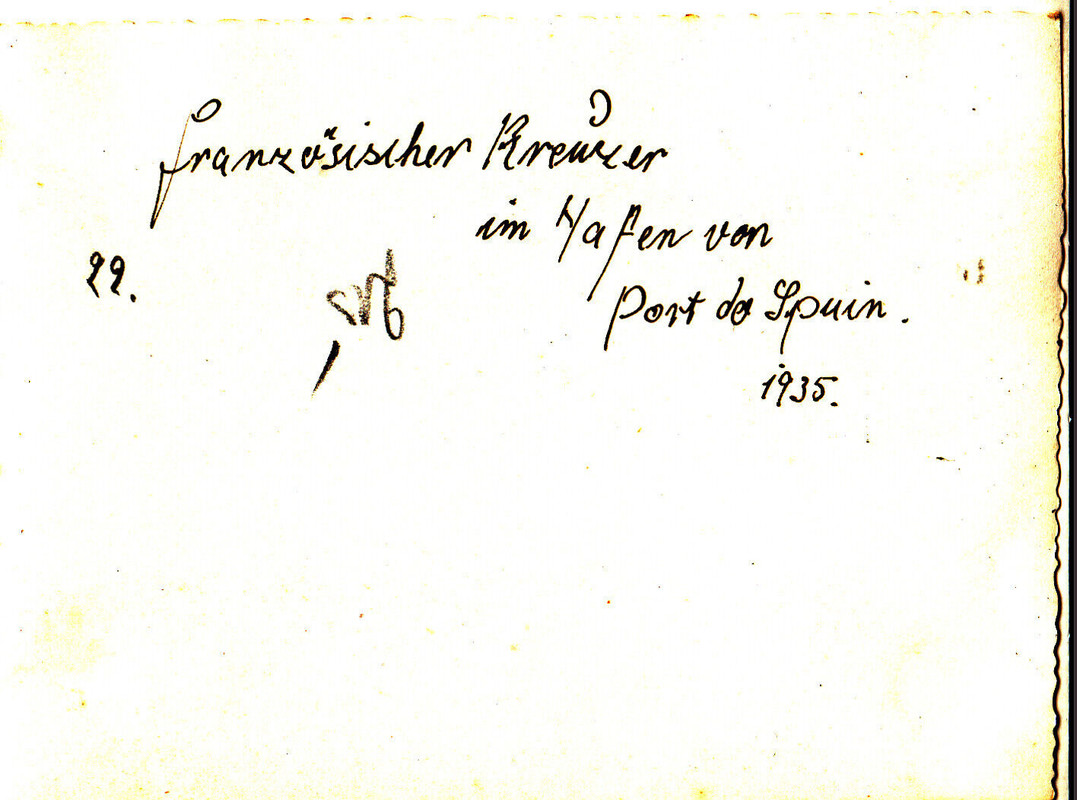 französischer Kreuzer
im Hafen von
22.
Port de Spuin.
1935.